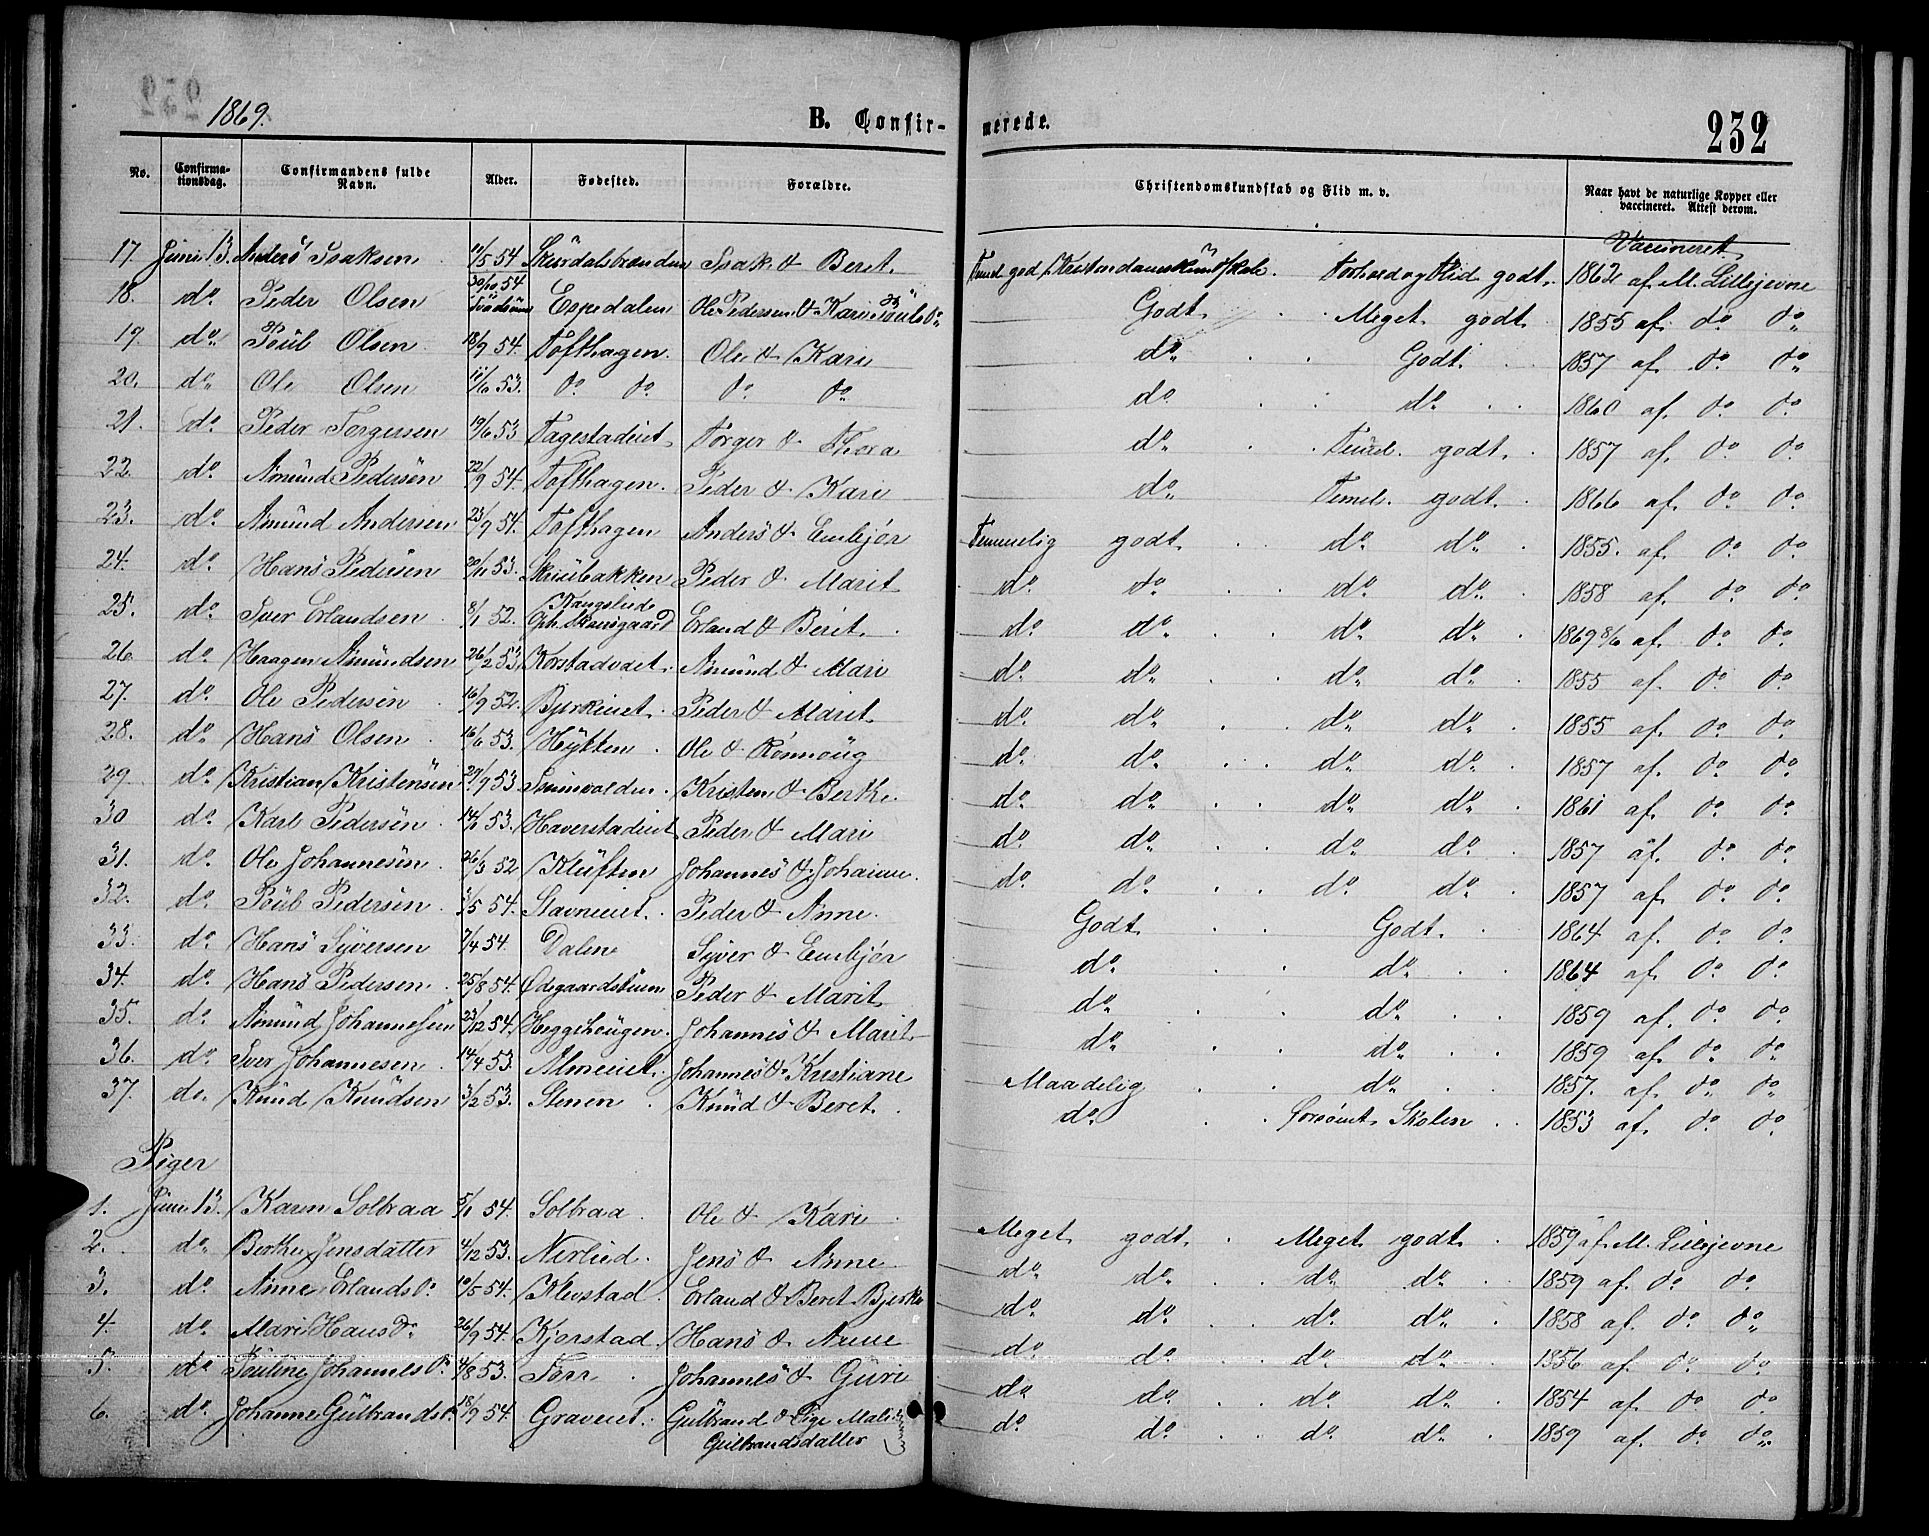 1869.
B. Confir-
merede.
232
No.
Confirma-
tionsdag.
Confirmandens fulde
Navn.
Alder.
Fødested.
Forældre.
Christendomskundskab og Flid m. v.
Naar havt de naturlige Kopper eller
vaccineret. Attest derom.
Vaccineret
17. Juni 13. Anders Isaksen 11/5 54 Isak & Beret Forhold og Flid godt. 1862 af M. Lillejevne
18. do. Peder Olsen 30/10 54 Espedalen Ole Pedersen & Kari Godt Meget godt 1855 af do do
19. do. Poul Olsen 18/9 54. Tofthagen. Ole & Kari do. Godt. 1857 af do do
20. do. Ole Olsen 53. do do do do do do. 1860 af do do
21. do. Peder Torgersen 19/6 53 Fagestadeiet Torger & Thora do. Temel. godt. 1857 af do do
22 do. Amund Pedersen 22/9 54. Tofthagen. Peder & Kari do. Temel. godt. 1866 af do do
23. do. Amund Andersen 23/9 54. Tofthagen Anders & Embjør Temmelig godt do. do. 1855. af do do
24. do. Hans Pedersen 20/11 53. Skriubakken Peder & Marit do. do. do. do. 1858 af do do
25. do. Iver Erlandsen 8/1 52. Erland & Berit do. do. do. do. 1869 8/6 af do do
26 do. Haagen Amundsen 26/2 53 Korstadødet Amund & Mari do. do. do. do. 1855 af do do
27. do. Ole Pedersen 16/9 52. Bjørkeiet. Peder & Marit do. do. do. do. 1855 af do do
28. do. Hans Olsen 16/6 53. Hytten. Ole & Rønnoug do. do. do. do. 1857 af do do
29 do. Kristian Kristensen 29/9 53 Kristen & Berthe do. do. do. do. 1861 af do do
30 do. Karl Pedersen 53. Haverstadeiet Peder & Mari do. do. do. do. 1857 af do do
31. do. Ole Johannesen 26/3 52 Kluften Johannes & Johanne. do. do. do. do. 1857 af do do
32. do. Poul Pedersen 54. Stavneiet. Peder & Anne. Godt Godt. 1864 af do do
33. do. Hans Syversen 7/4 54. Dalen Syver & Embjør do. do. 1864 af do do
34. do. Hans Pedersen 25/8 54. Ødegaardstuen Peder & Marit do. do. 1859 af do do
35. do. Amund Johannesen 23/12 54. Heggehougen. Johannes & Marit do. do. 1859 af do do
36. do. Iver Johannesen 14/4 53. Almeiet. Johannes & Kristiane Maadelig do. 1857. af do do
37. do. Knud Knudsen 3/2 53. Stenen Knud & Beret do. Forsømt Skolen 1853 af do do
Piger
1. Juni 13. Karen Solbraa 5/1 54. Solbraa. Ole & Kari Meget godt. Meget godt 1859 af M. Lillejevne
2. do. Berthe Jensdatter 4/12 53. Nerlied. Jens & Anne do. do. do. do. 1859 af do do
3. do. Anne Erlandsdr 10/5 54. Klevstad. Erland & Beret Bjerke do. do. do. do. 1858 af do do
4. do. Mari Hansdr 26/9 54. Kjorstad. Hans & Anne do. do. do. do. 1856 af do do
5. do. Pouline Johannesdr 4/8 53. Johannes & Guri do. do. do. do. 1854 af do do
6. do. Johanne Gulbrandsdr 18/9 54. Graveiet. Gulbrand & Pige Mali do. do. do. do. 1859 af do do
Gulbrandsdatter